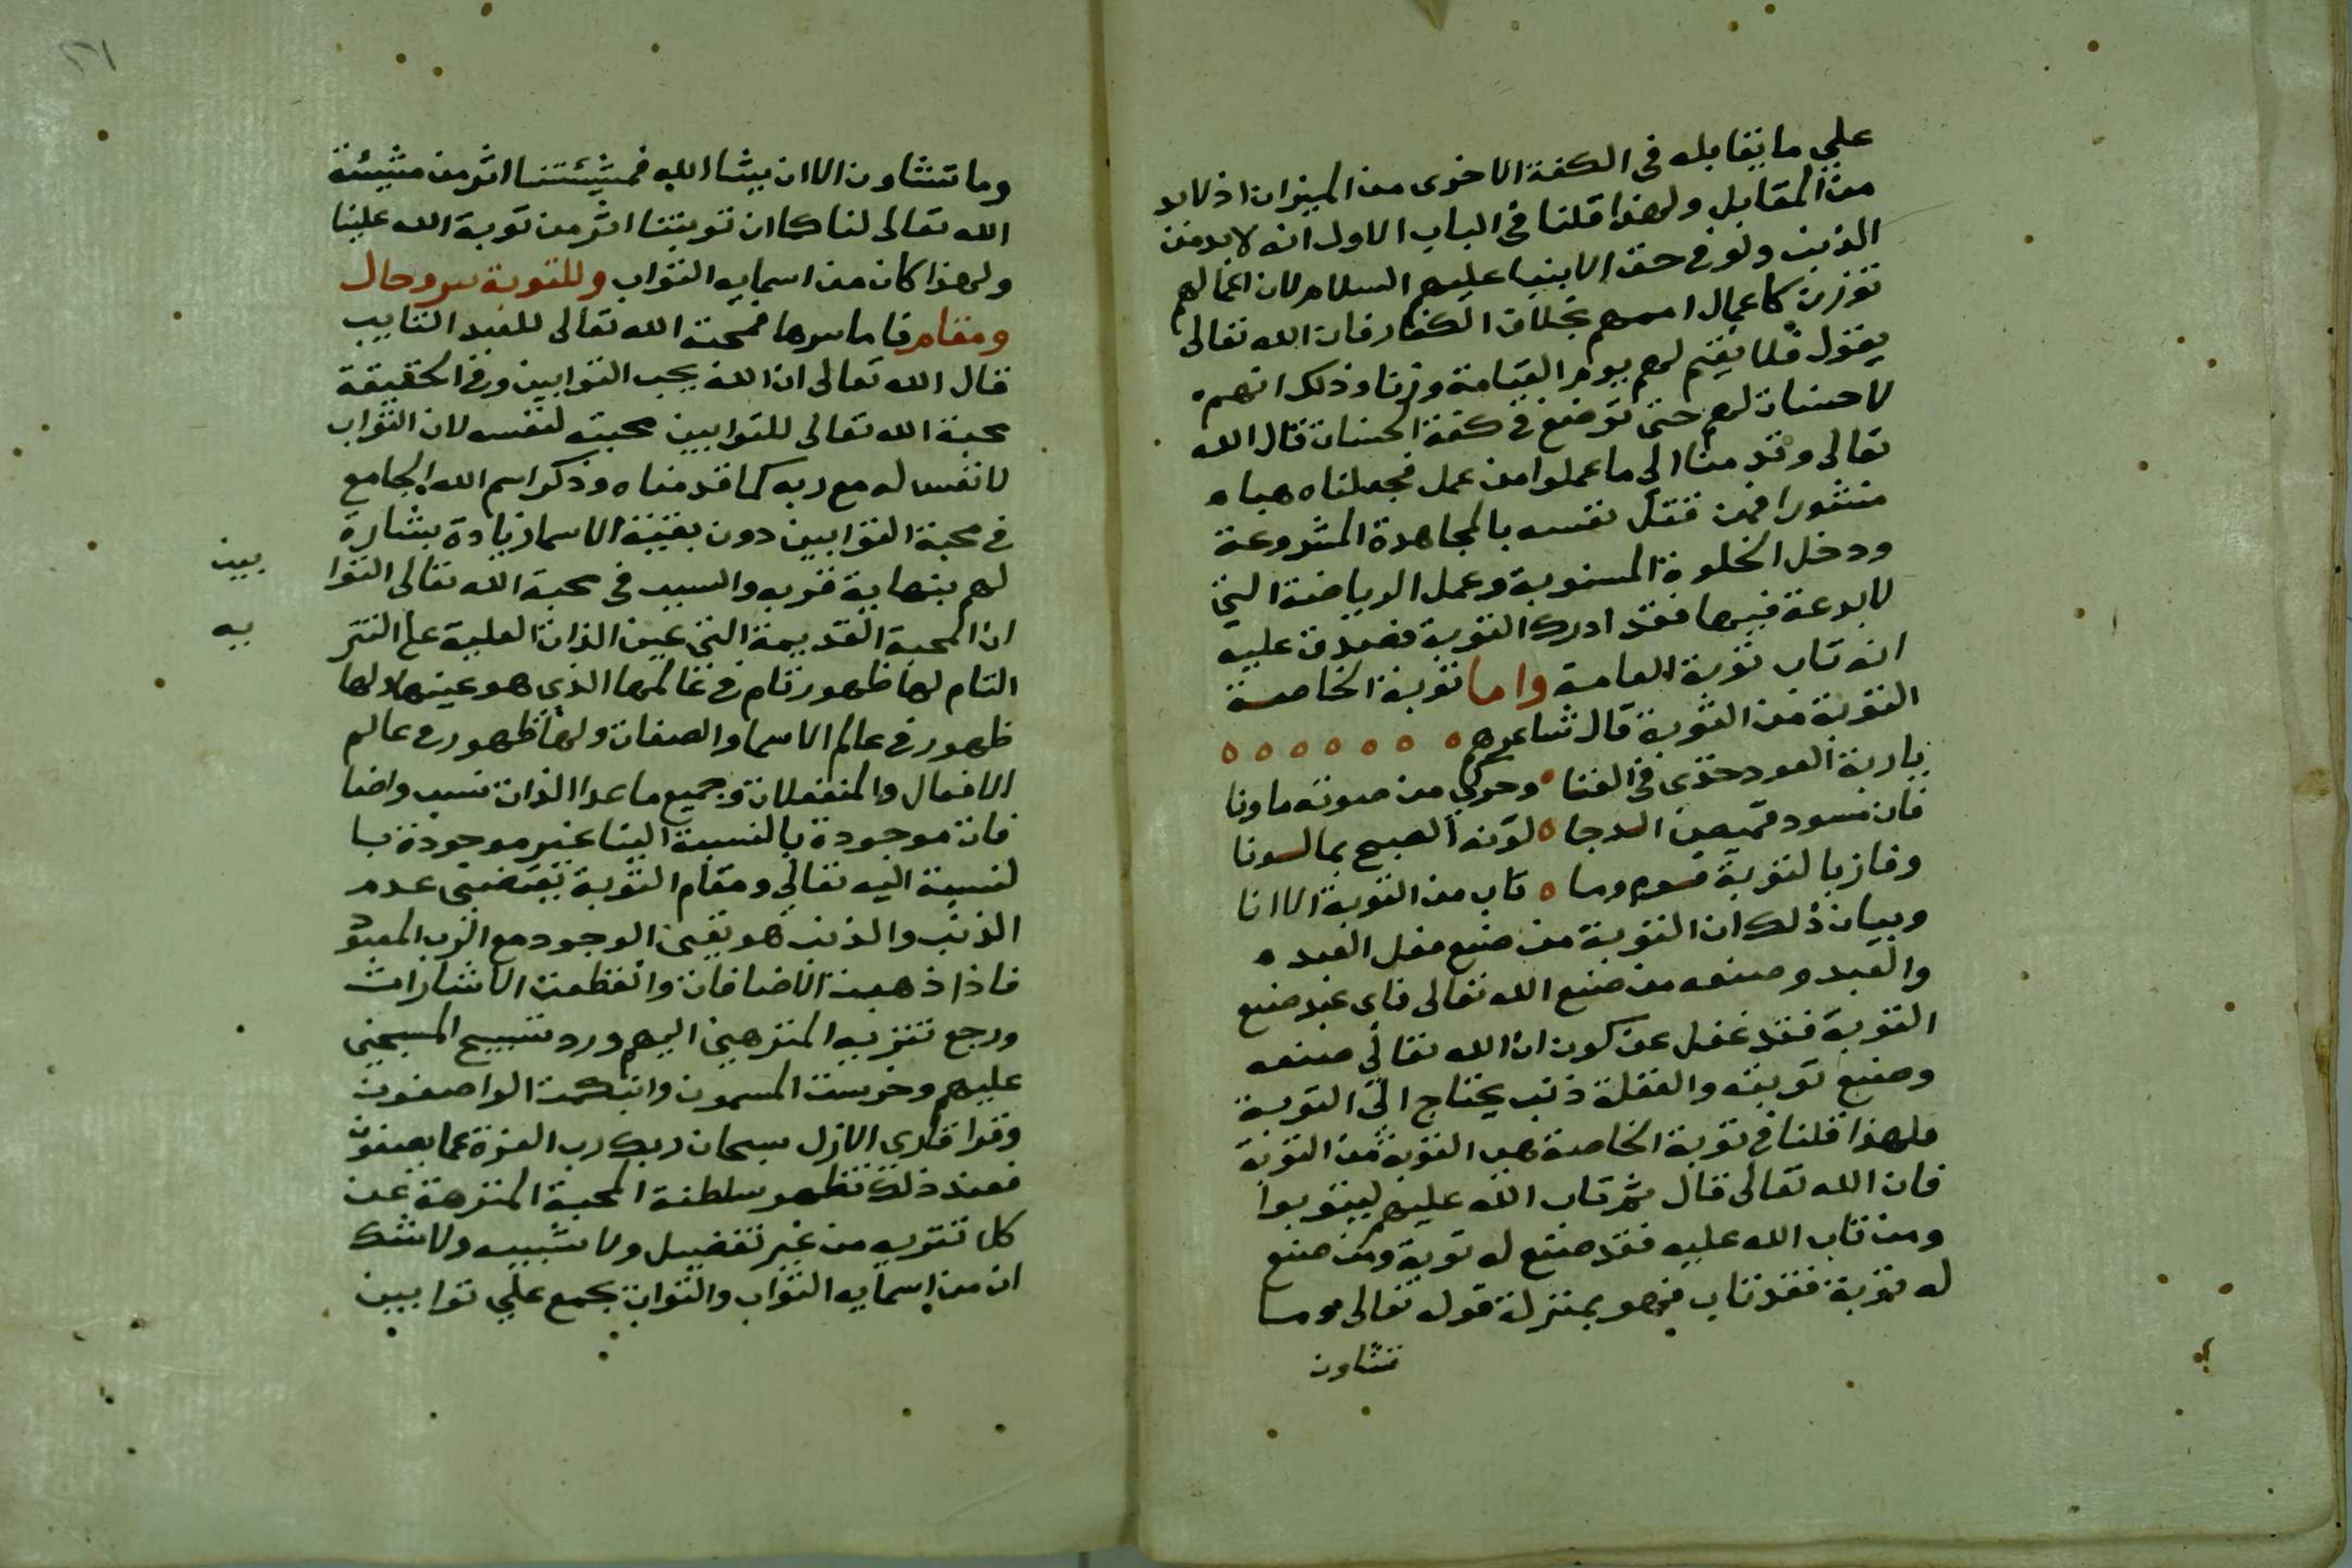 علي ما يقابله في الكفة الاخرى من الميزان اذ لابد
من المقابل ولهذا قلنا في الباب الاول انه لابد من
الذنب ولو في حق الانبيا عليهم السلام لان اعمالهم
توزن كاعمال اممهم بخلاف الكفار فان الله تعالى
يقول فلا يقيم لهم يوم القيامة وزنا وذلك انهم
لا حسنات لهم حتى توضع في كفة الحسنات قال الله
تعالى وقدمنا الى ما عملوا من عمل فجعلناه هباء
منثورا فمن قتل نفسه بالمجاهدة المشروعة
ودخل الخلوة المسنونة وعمل الرياضة التي
لا بدعة فيها فقد ادرك التوبة فصدق عليه
انه تاب توبة العامة واما توبة الخاصة
التوبة من التوبة قال شاعرهم
ياربة العود خذى في الغنا وحركي من صوته ماونا
فان مسود قميص الدجا لونه الصبح بما لونا
وفاز بالتوبة قوم وما تاب من التوبة الا انا
وبيان ذلك ان التوبة من صنع فعل العبد
والعبد وصنعه من صنع الله تعالى فاي عبد صنع
التوبة فقد غفل عن كون ان الله تعالى صنعه
وصنع توبته والغفلة ذنب يحتاج الى التوبة
فلهذا قلنا في توبة الخاصة هي التوبة من التوبة
فان الله تعالى قال ثم تاب الله عليهم ليتوبوا
ومن تاب الله عليه فقد صنع له توبة ومن صنع
له توبة فقد تاب فهو بمنزلة قوله تعالى وما
تشاون
٢١
وما تشاون الا ان يشا الله فمشيئتنا اثر من مشيئة
الله تعالى لنا كما ان توبتنا اثر من توبة الله علينا
ولهذا كان من اسمايه التواب وللتوبة سر وحال
ومقام فاما سرها فمحبة الله تعالى للعبد التايب
قال الله تعالى ان الله يحب التوابين وفي الحقيقة
محبة الله تعالى للتوابين محبته لنفسه لان التواب
لا نفس له مع ربه كما قدمناه وذكر اسم الله الجامع
في محبة التوابين دون بقية الاسما زيادة بشارة
لهم بنهاية قربه والسبب في محبة الله تعالى التوا
بين
ان المحبة القديمة التي عين الذات العلية على التنز
يه
التام لها ظهور تام في عالمها الذي هو عينها ولها
ظهور في عالم الاسما والصفات ولها ظهور في عالم
الافعال والمنفعلات وجميع ما عدا الذات نسب واضا
فات موجودة بالنسبة الينا غير موجودة با
لنسبة اليه تعالي ومقام التوبة يقتضي عدم
الذنب والذنب هو تعين الوجود مع الرب المعبود
فاذا ذهبت الاضافات وانقطعت الاشارات
ورجع تنزيه المنزهين اليهم ورد تسبيح المسبحين
عليهم وخرست المسمون وانبكمت الواصفون
وقرا قاري الازل سبحان ربك رب العزة عما يصفون
فعند ذلك تظهر سلطنة المحبة المنزهة عن
كل تنويه من غير تفضيل ولا تشبيه ولا شك
ان من اسمايه التواب والتواب يجمع علي توابين